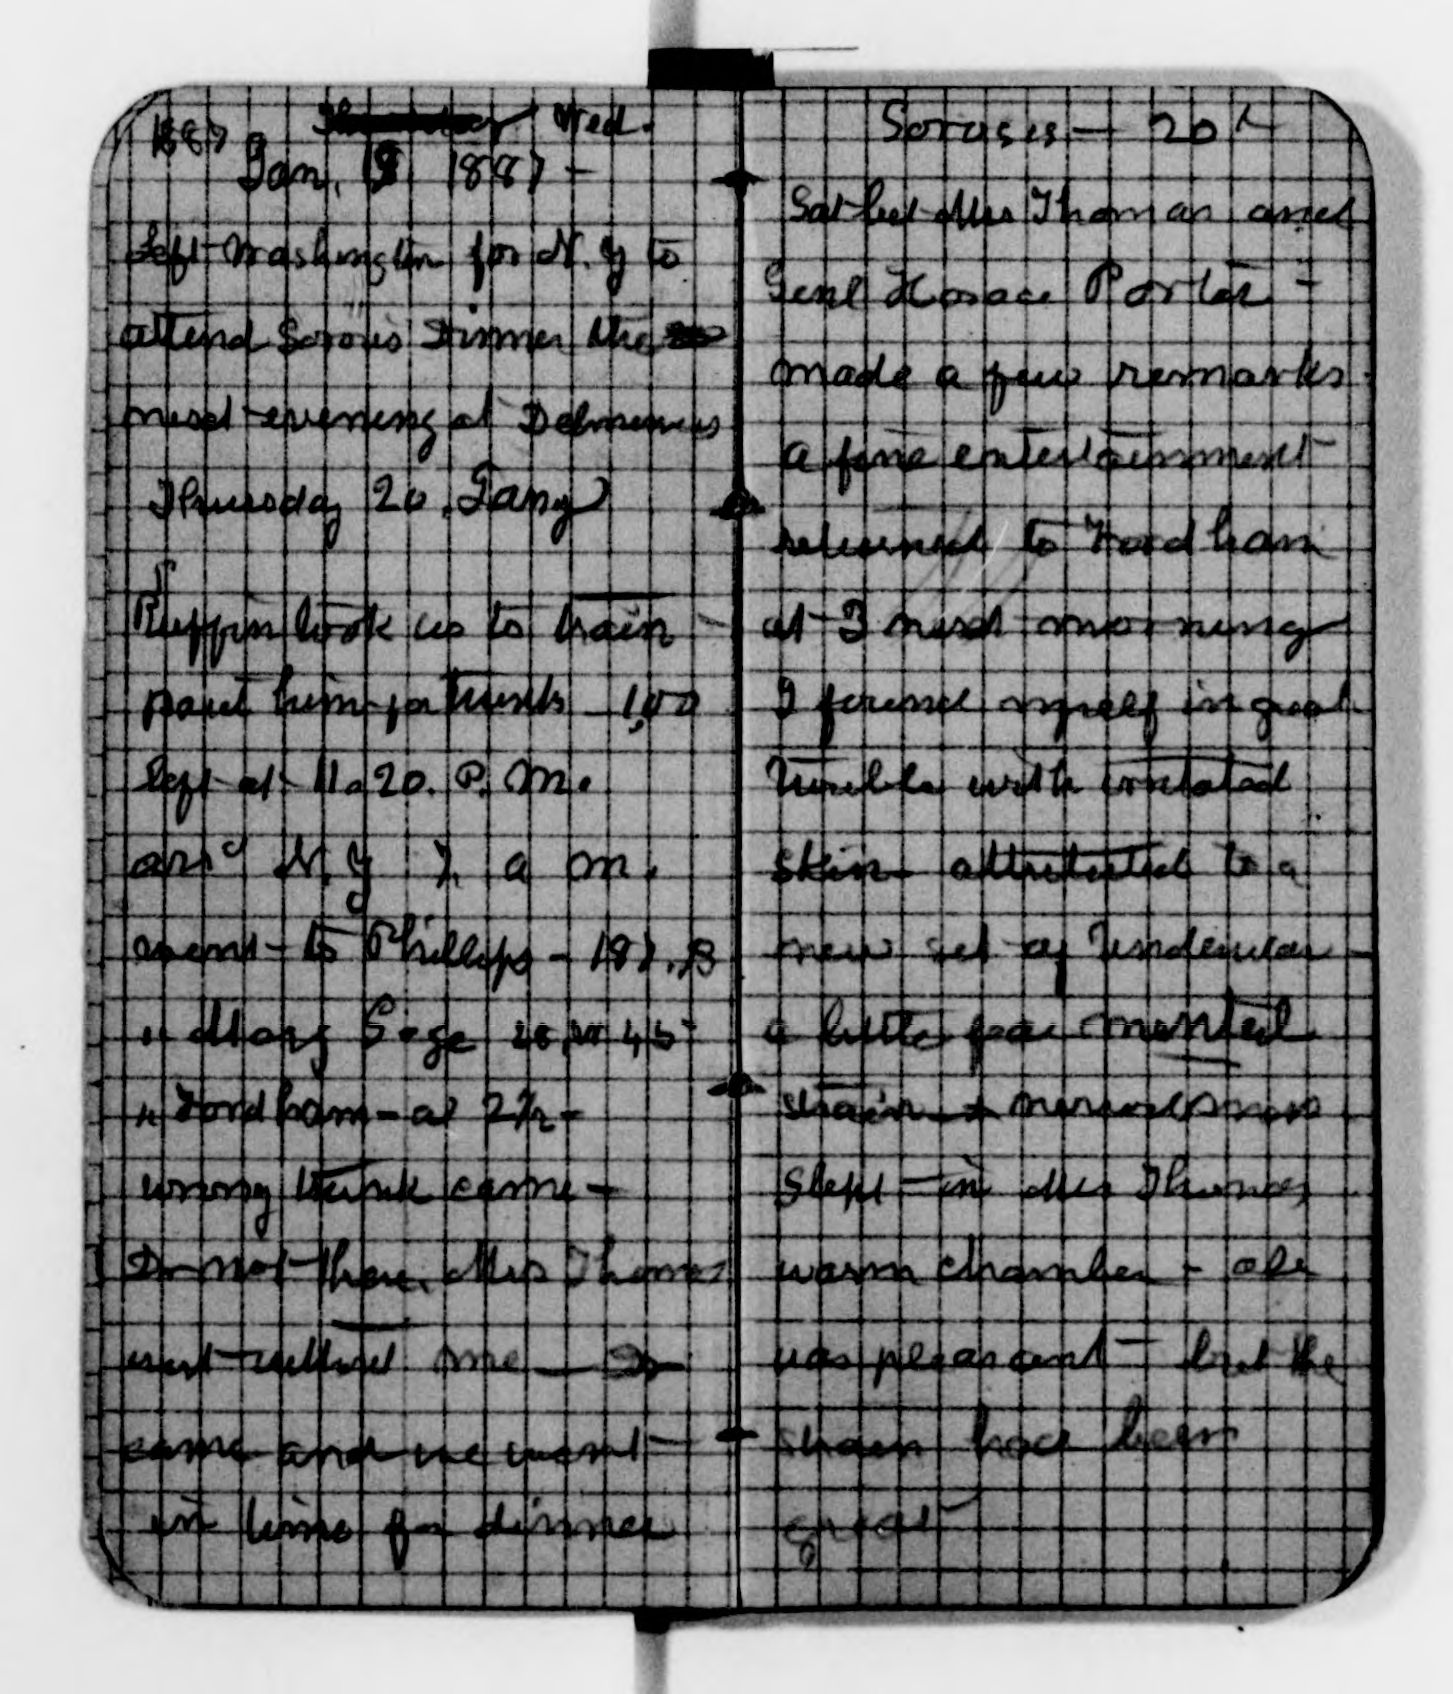 1887 Wed.
Jan. 19 1887 -
Left Washington for N.Y to
attend Sorosis Dinner the
next evening at Delmonicos
Thursday 20. Jany
Ruffin took us to train -
paid him for trunks 1,00
left at 11.20. P.M.
arrd N.Y 7. a m.
went to Phillips - 187.
" Mary Gage 45
" Fordham - at 2½ -
wrong trunk came -
Dr not there. Mrs Thomas
went without me - Dr
came and we went -
in time for dinner
Sorosis - 20th
Sat bet Mrs Thomas and
Genl Horace Porter -
made a few remarks
a fine entertainment
returned to Fordham
at 3 next morning
I found myself in great
trouble with irritated
skin attributed to a
new set of underwear -
a little for mental
strain & nervousness
Slept in Mrs Thomas
warm chamber - all
was pleasant - but the
strain had been
great -